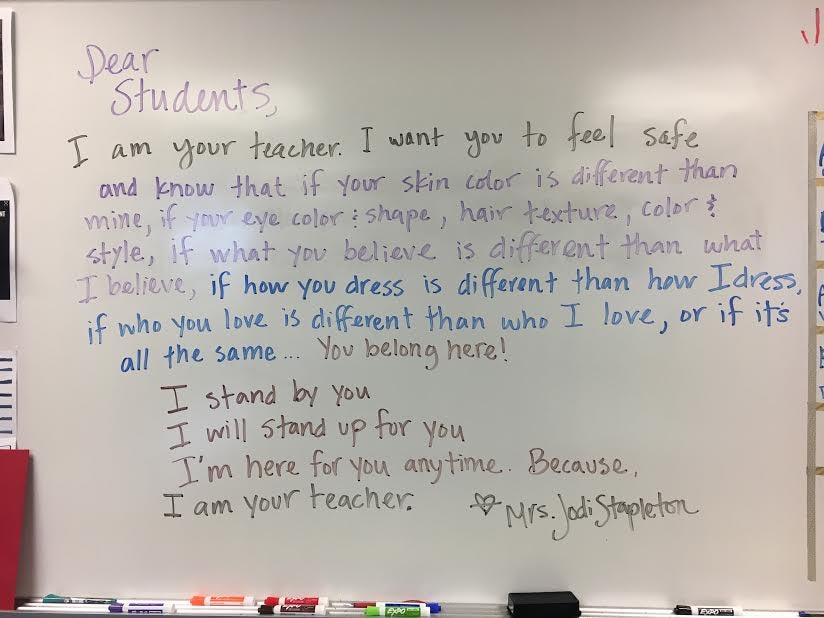 Dear
Students,
I am your teacher. I want you to feel safe
and know that if your skin color is different than
mine, if your eye color & shape, hair texture, color &
style, if what you believe is different than what
I believe, if how you dress is different than how I dress,
if who you love is different than who I love, or if it's
all the same... You belong here!
I stand by you
I will stand up for you
I'm here for you anytime. Because,
I am your teacher. ♡ Mrs. Jodi Stapleton
EXPO
EXPO